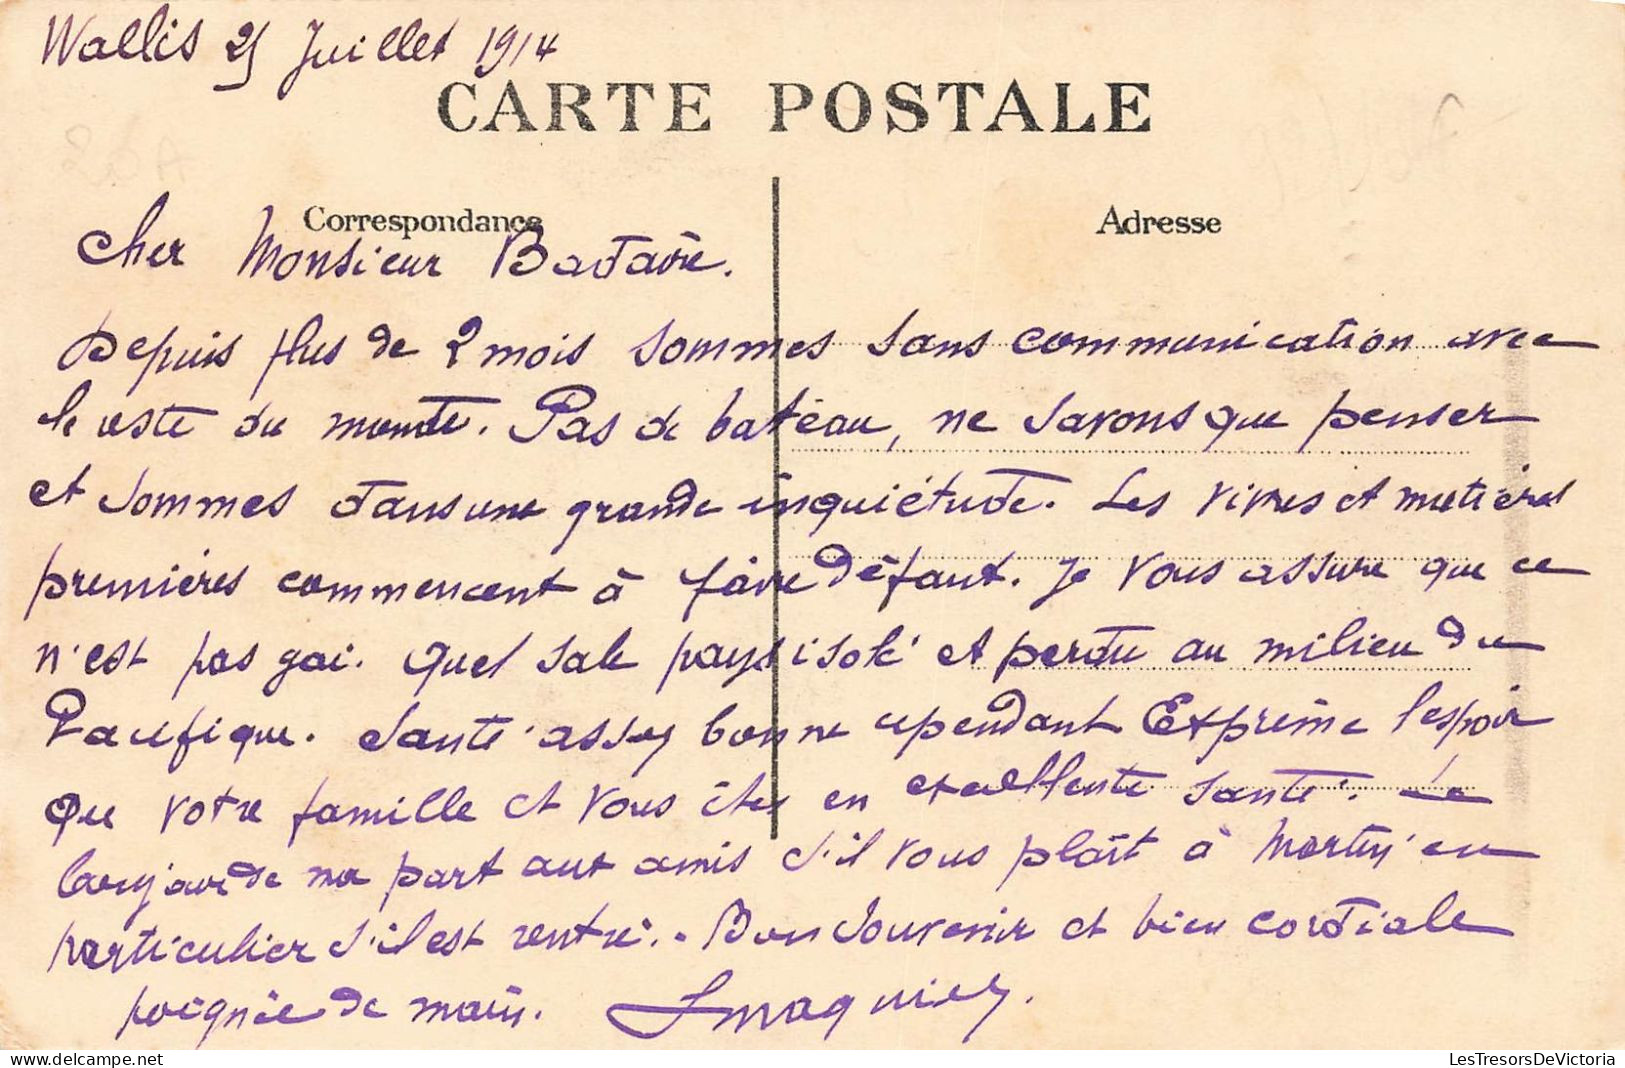 Wallis 25 Juillet 1914
CARTE POSTALE
Correspondance
Adresse
Cher Monsieur
Depuis plus de 2 mois sommes sans communication avec
le reste du monde. Pas de bateau, ne savons que penser
et sommes dans une grande inquiétude. Les vivres et matières
premières commencent à faire défaut. Je vous assure que ce
n'est pas gai. Quel sale pays isolé et perdu au milieu du
Pacifique. Santé assez bonne cependant Exprime l'espoir
que votre famille et vous êtes en excellente santé. Le
bonjour de ma part aux amis s'il vous plaît à Martin en
particulier s'il est rentré. - Bon souvenir et bien cordiale
poignée de main.
LesTresorsDeVictoria